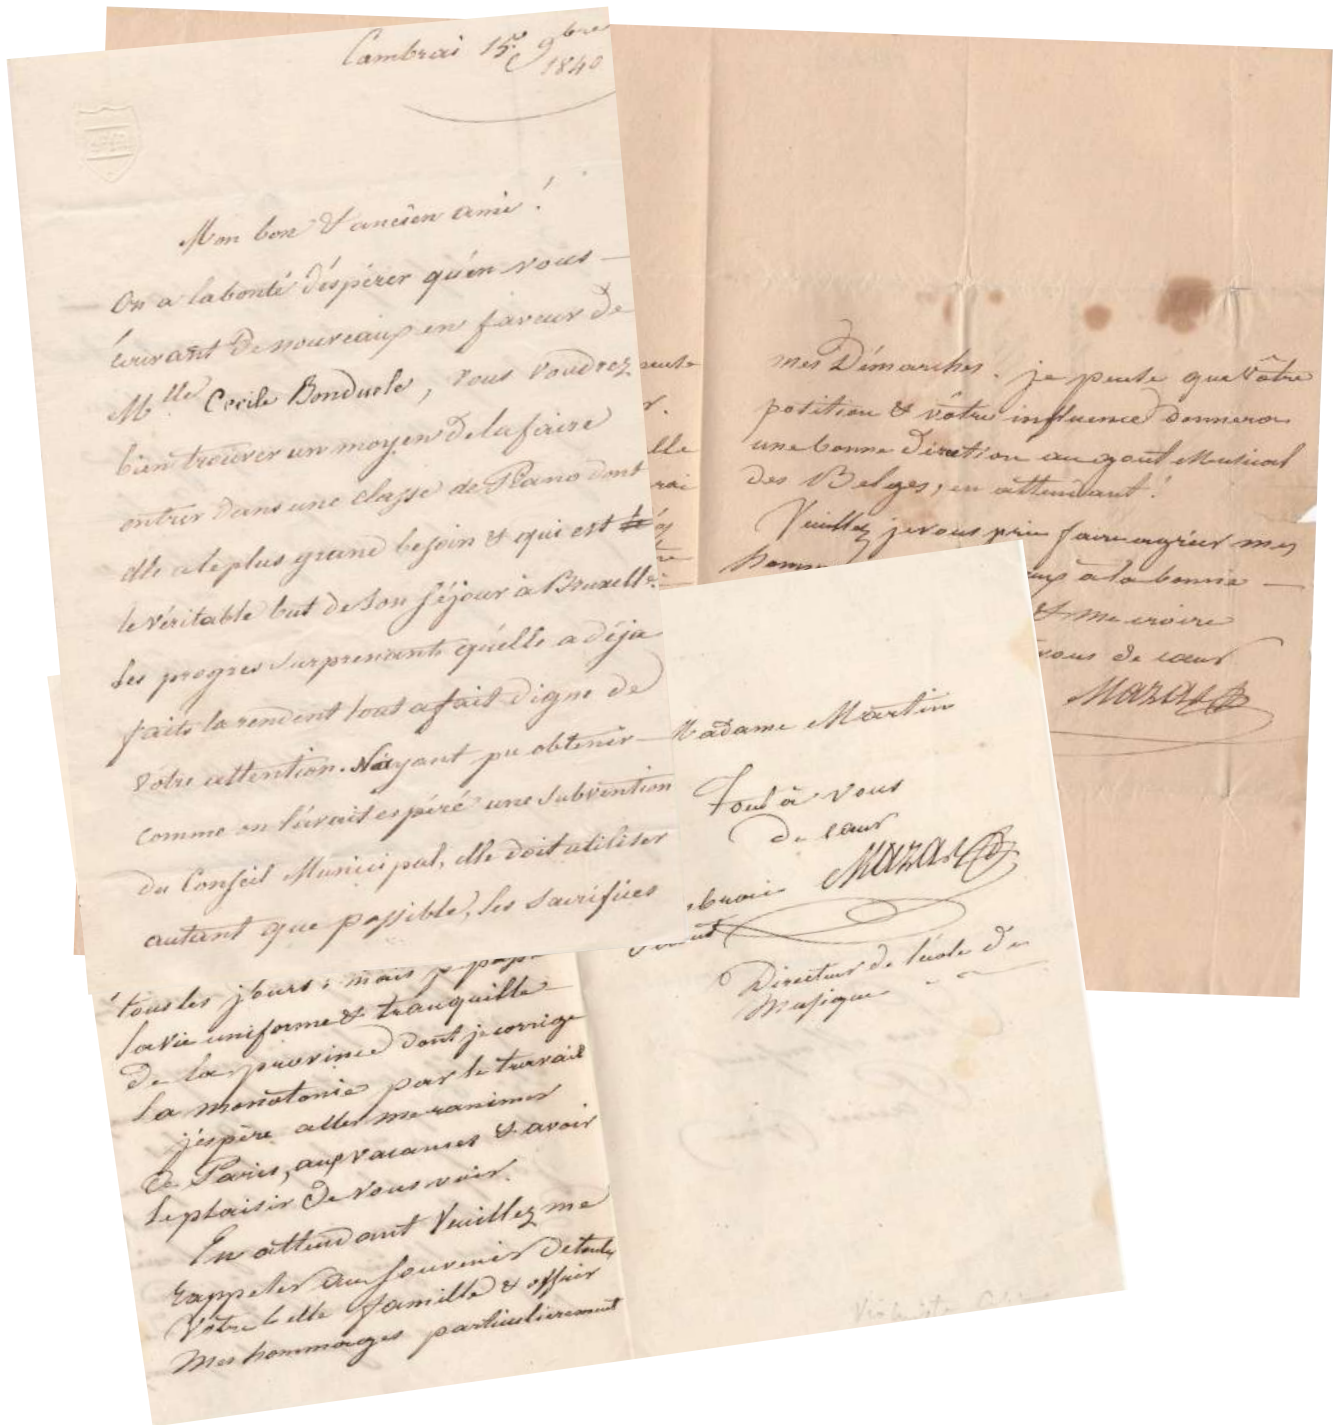 Cambrai 15 9bre
1840
Mon bon & ancien ami !
On a la bonté d'éspérer qu'en vous
écrivant de nouveaux en faveur de
Mlle Cecile Bonduele, vous voudrez
bien trouver un moyen de la faire
entrer dans une classe de Piano dont
elle a le plus grand besoin & qui est
le véritable but de son séjour à Bruxelles.
Les progres surprenants qu'elle a déja
faits la rendent tout a fait digne de
votre attention. N'ayant pu obtenir
comme on l'avait espéré une subvention
du Conseil Municipal, elle doit utiliser
autant que possible, les sacrifices
mes Démarches. je pense que Vôtre
position & vôtre influence donnera
une bonne Direction au gout Musical
des Belges, en attendant !
Veuillez je vous prie faire agréer mes
à la bonne
& me croire
vous de cœur
Mazas
tous les jours : mais
la vie uniforme & tranquille
de la province dont je corrige
la monotonie par le travail
j'éspère aller me ranimer
de Paris, aux vacances & avoir
le plaisir de vous voir.
En attendant Veuillez me
rappeler au souvenir de toute
Votre belle famille & offrir
Mes hommages particulierement
Madame Martin
Tout à vous
de cœur
Mazas
Directeur de l'école de
Musique